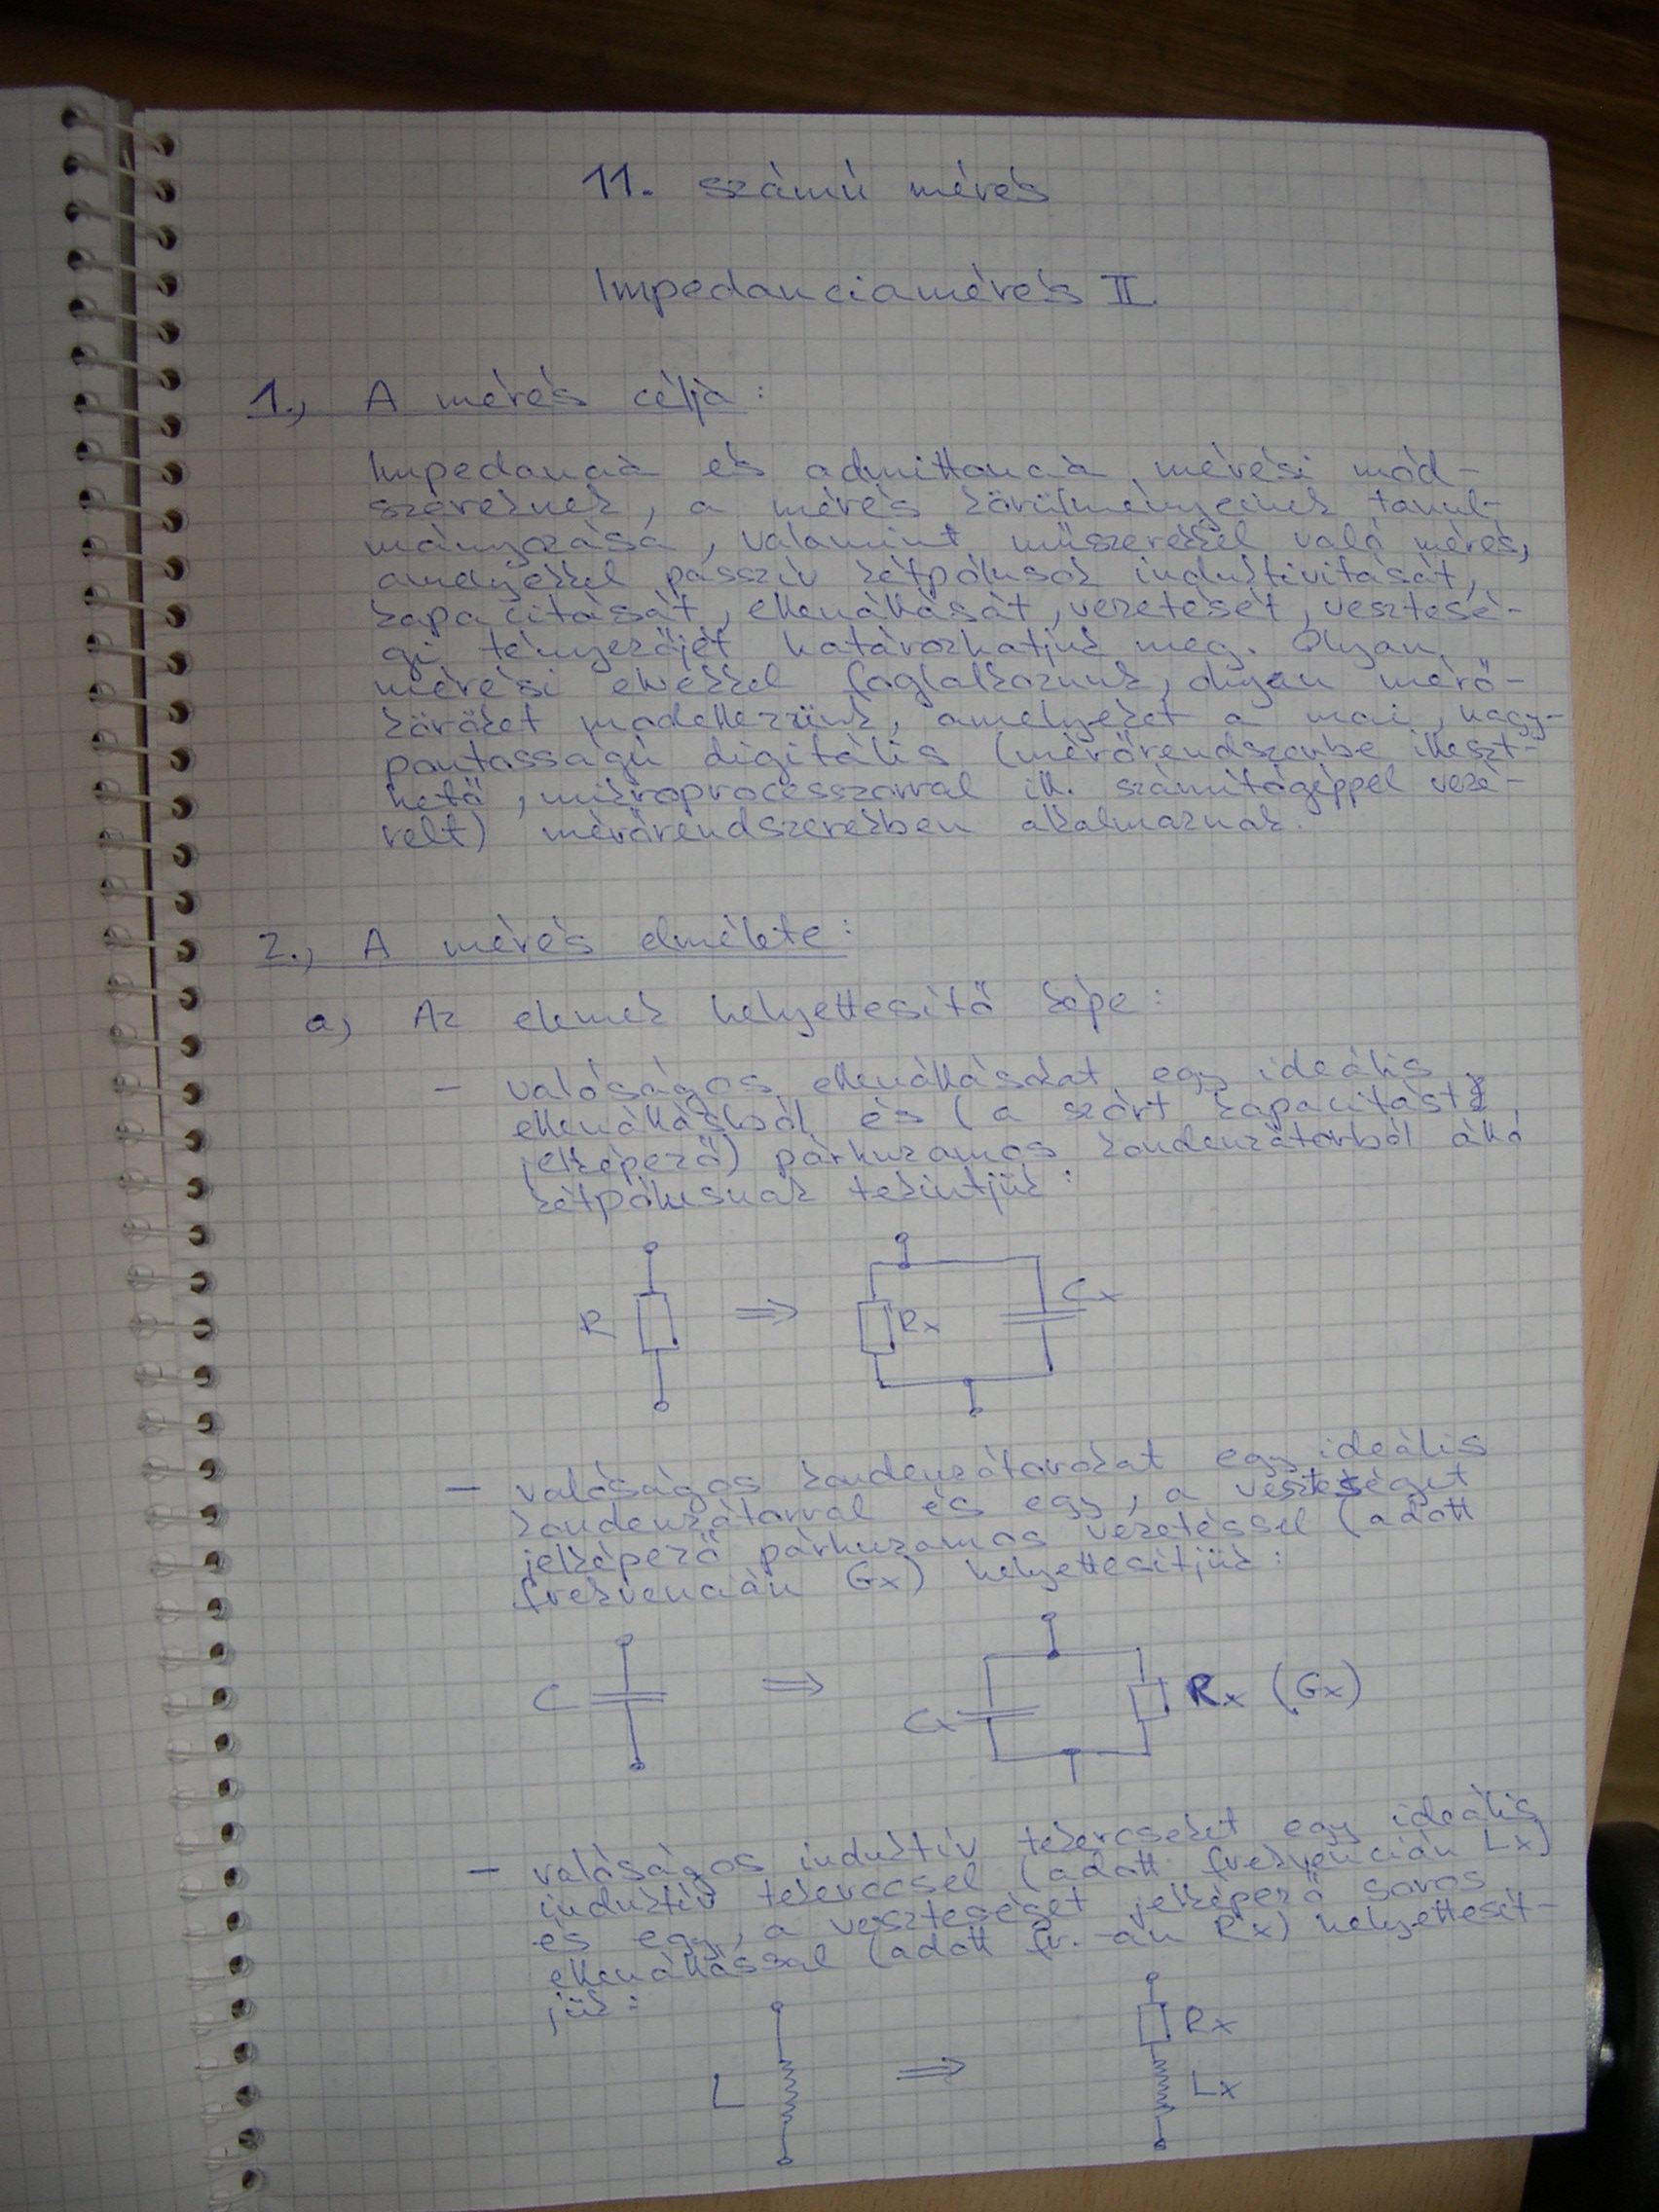 11. számú mérés
Impedanciamérés II.
1., A mérés célja:
Impedancia és admittancia mérési mód-
szereknek, a mérés körülményeinek tanul-
mányozása, valamint műszerekkel való mérés,
amelyekkel passzív kétpólusok induktivitását,
kapacitását, ellenállását, vezetését, vesztesé-
gi tényezőjét határozhatjuk meg. Olyan
mérési elvekkel foglalkozunk, olyan mérő-
köröket modellezzünk, amelyeket a mai, nagy-
pontosságú digitális (mérőrendszerbe illeszt-
hető, mikroprocesszorral ill. számítógéppel vezé-
relt) mérőrendszerekben alkalmaznak.
2., A mérés elmélete:
a, Az elemek helyettesítő képe:
- valóságos ellenállásokat egy ideális
ellenállásból és (a szórt kapacitást
jelképező) párhuzamos kondenzátorból álló
kétpólusnak tekintjük:
R ⇒ Rx Cx
- valóságos kondenzátorokat egy ideális
kondenzátorral és egy, a veszteséget
jelképező párhuzamos vezetéssel (adott
frekvencián Gx) helyettesítjük:
C ⇒ Cx Rx (Gx)
- valóságos induktív tekercseket egy ideális
induktív tekerccsel (adott frekvencián Lx)
és egy, a veszteséget jelképező soros
ellenállással (adott fr.-án Rx) helyettesít-
jük:
Rx
L ⇒ Lx